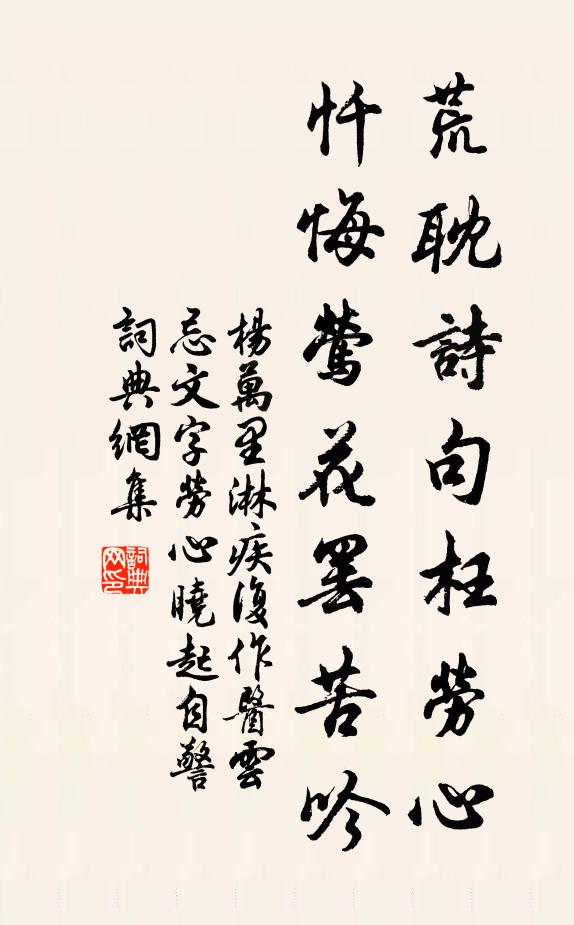 荒耽詩句枉勞心
忏悔鶯花罢苦吟
楊萬里淋疾復作醫雲
忌文字勞心曉起自警
詞典網集
詞典网印